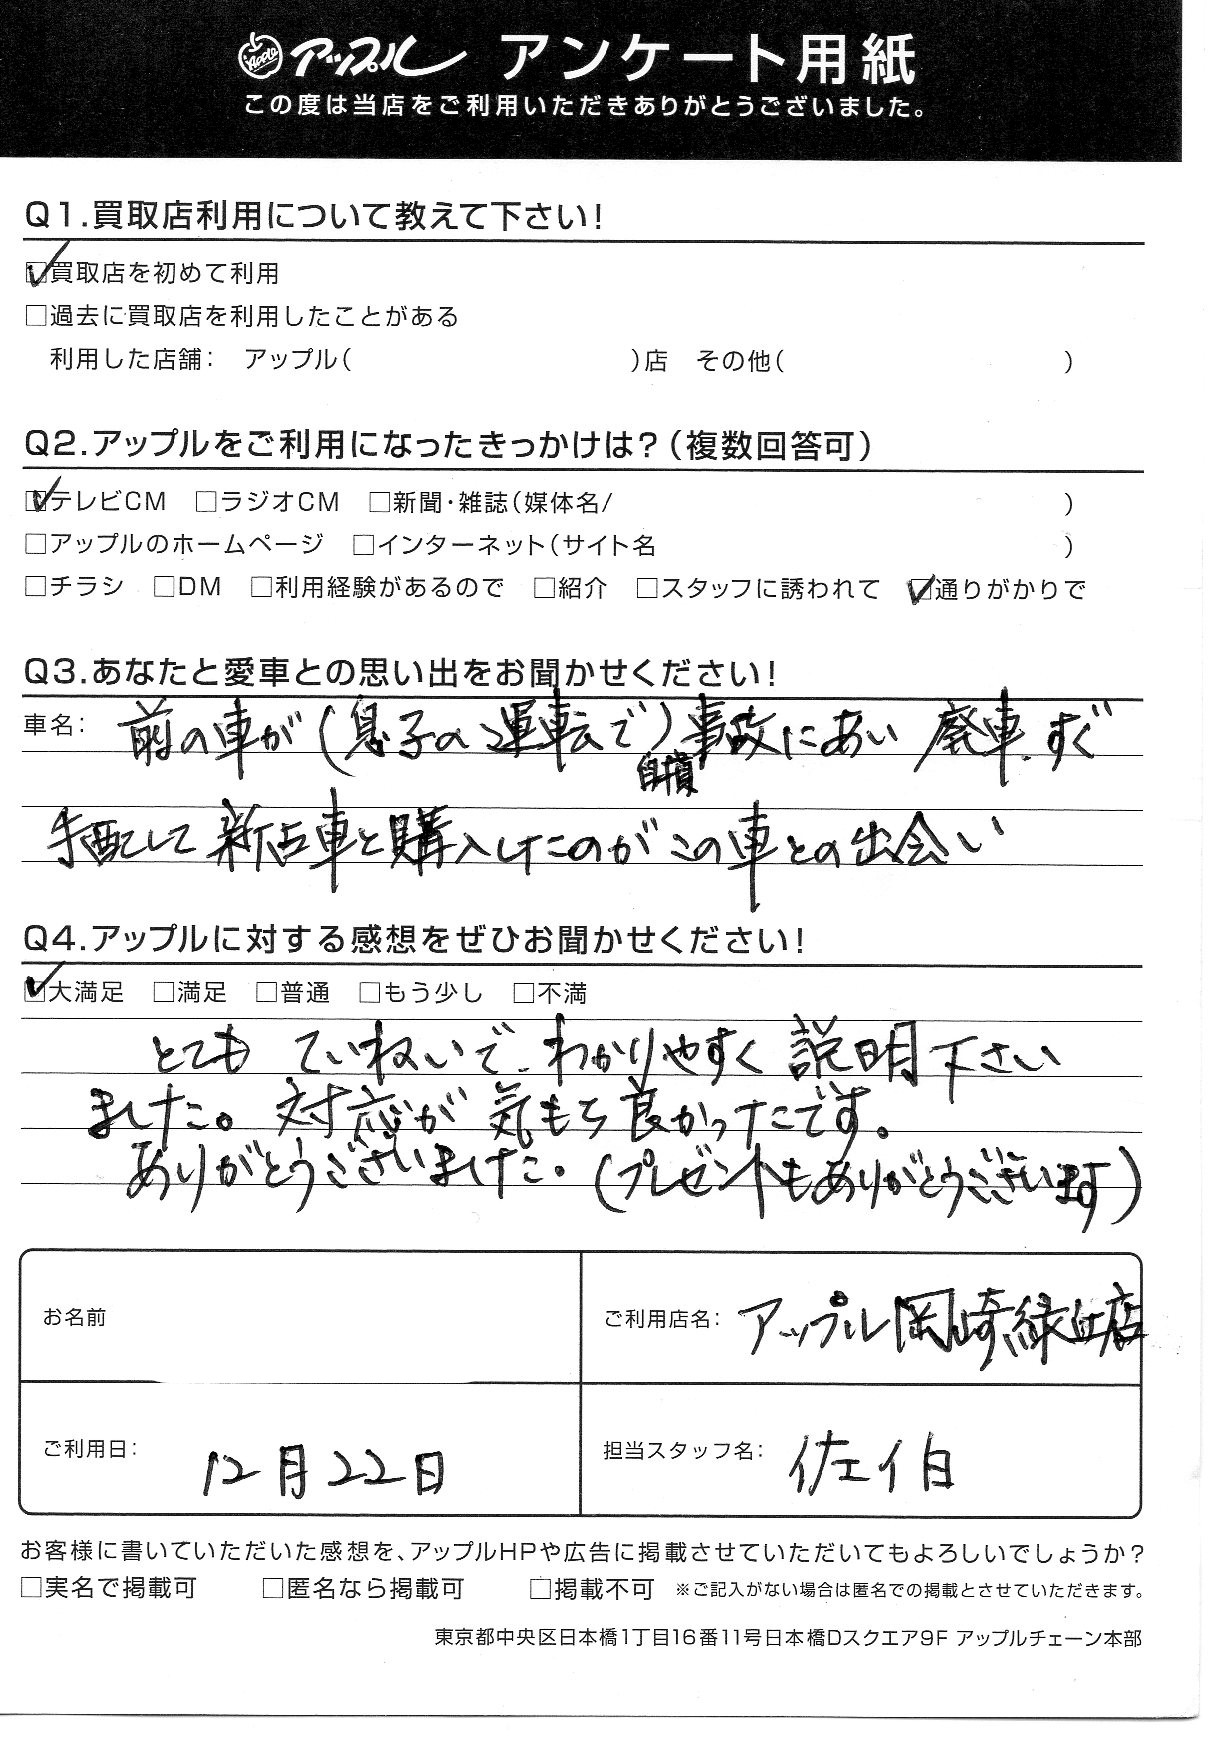 Apple アップル アンケート用紙
この度は当店をご利用いただきありがとうございました。
Q1.買取店利用について教えて下さい！
☑買取店を初めて利用
□過去に買取店を利用したことがある
利用した店舗： アップル（ ）店 その他（ ）
Q2.アップルをご利用になったきっかけは？（複数回答可）
☑テレビCM □ラジオCM □新聞・雑誌（媒体名/ ）
□アップルのホームページ □インターネット（サイト名 ）
□チラシ □DM □利用経験があるので □紹介 □スタッフに誘われて ☑通りがかりで
Q3.あなたと愛車との思い出をお聞かせください！
車名： 前の車が（息子の運転で）事故にあい 廃車 すぐ
自損
手配して新古車と購入したのがこの車との出会い
Q4.アップルに対する感想をぜひお聞かせください！
☑大満足 □満足 □普通 □もう少し □不満
とても ていねいで、わかりやすく 説明下さい
ました。対応が 気もち良かったです。
ありがとうございました。（プレゼントもありがとうございます）
お名前
ご利用店名： アップル岡崎緑丘店
ご利用日： 12月22日
担当スタッフ名： 佐伯
お客様に書いていただいた感想を、アップルHPや広告に掲載させていただいてもよろしいでしょうか？
□実名で掲載可 □匿名なら掲載可 □掲載不可 ※ご記入がない場合は匿名での掲載とさせていただきます。
東京都中央区日本橋1丁目16番11号日本橋Dスクエア9F アップルチェーン本部